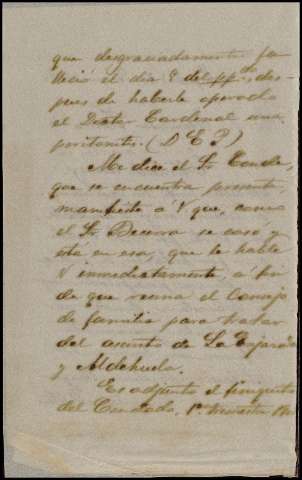 que desgraciadamente fa
lleció el dia 8 del pp.do des-
pues de haberle operado
el Doctor Cardenal una
peritonitis. (D E P)
Me dice el Sr Conde,
que se encuentra presente,
manifieste á V que, como
el Sr Becerra se casó y
está en esa, que le hable
V inmediatamente, a fin
de que reuna el Consejo
de familia para tratar
del asunto de La
y Aldehuela.
Es adjunto el finiquito
del Condado, 1er trimestre